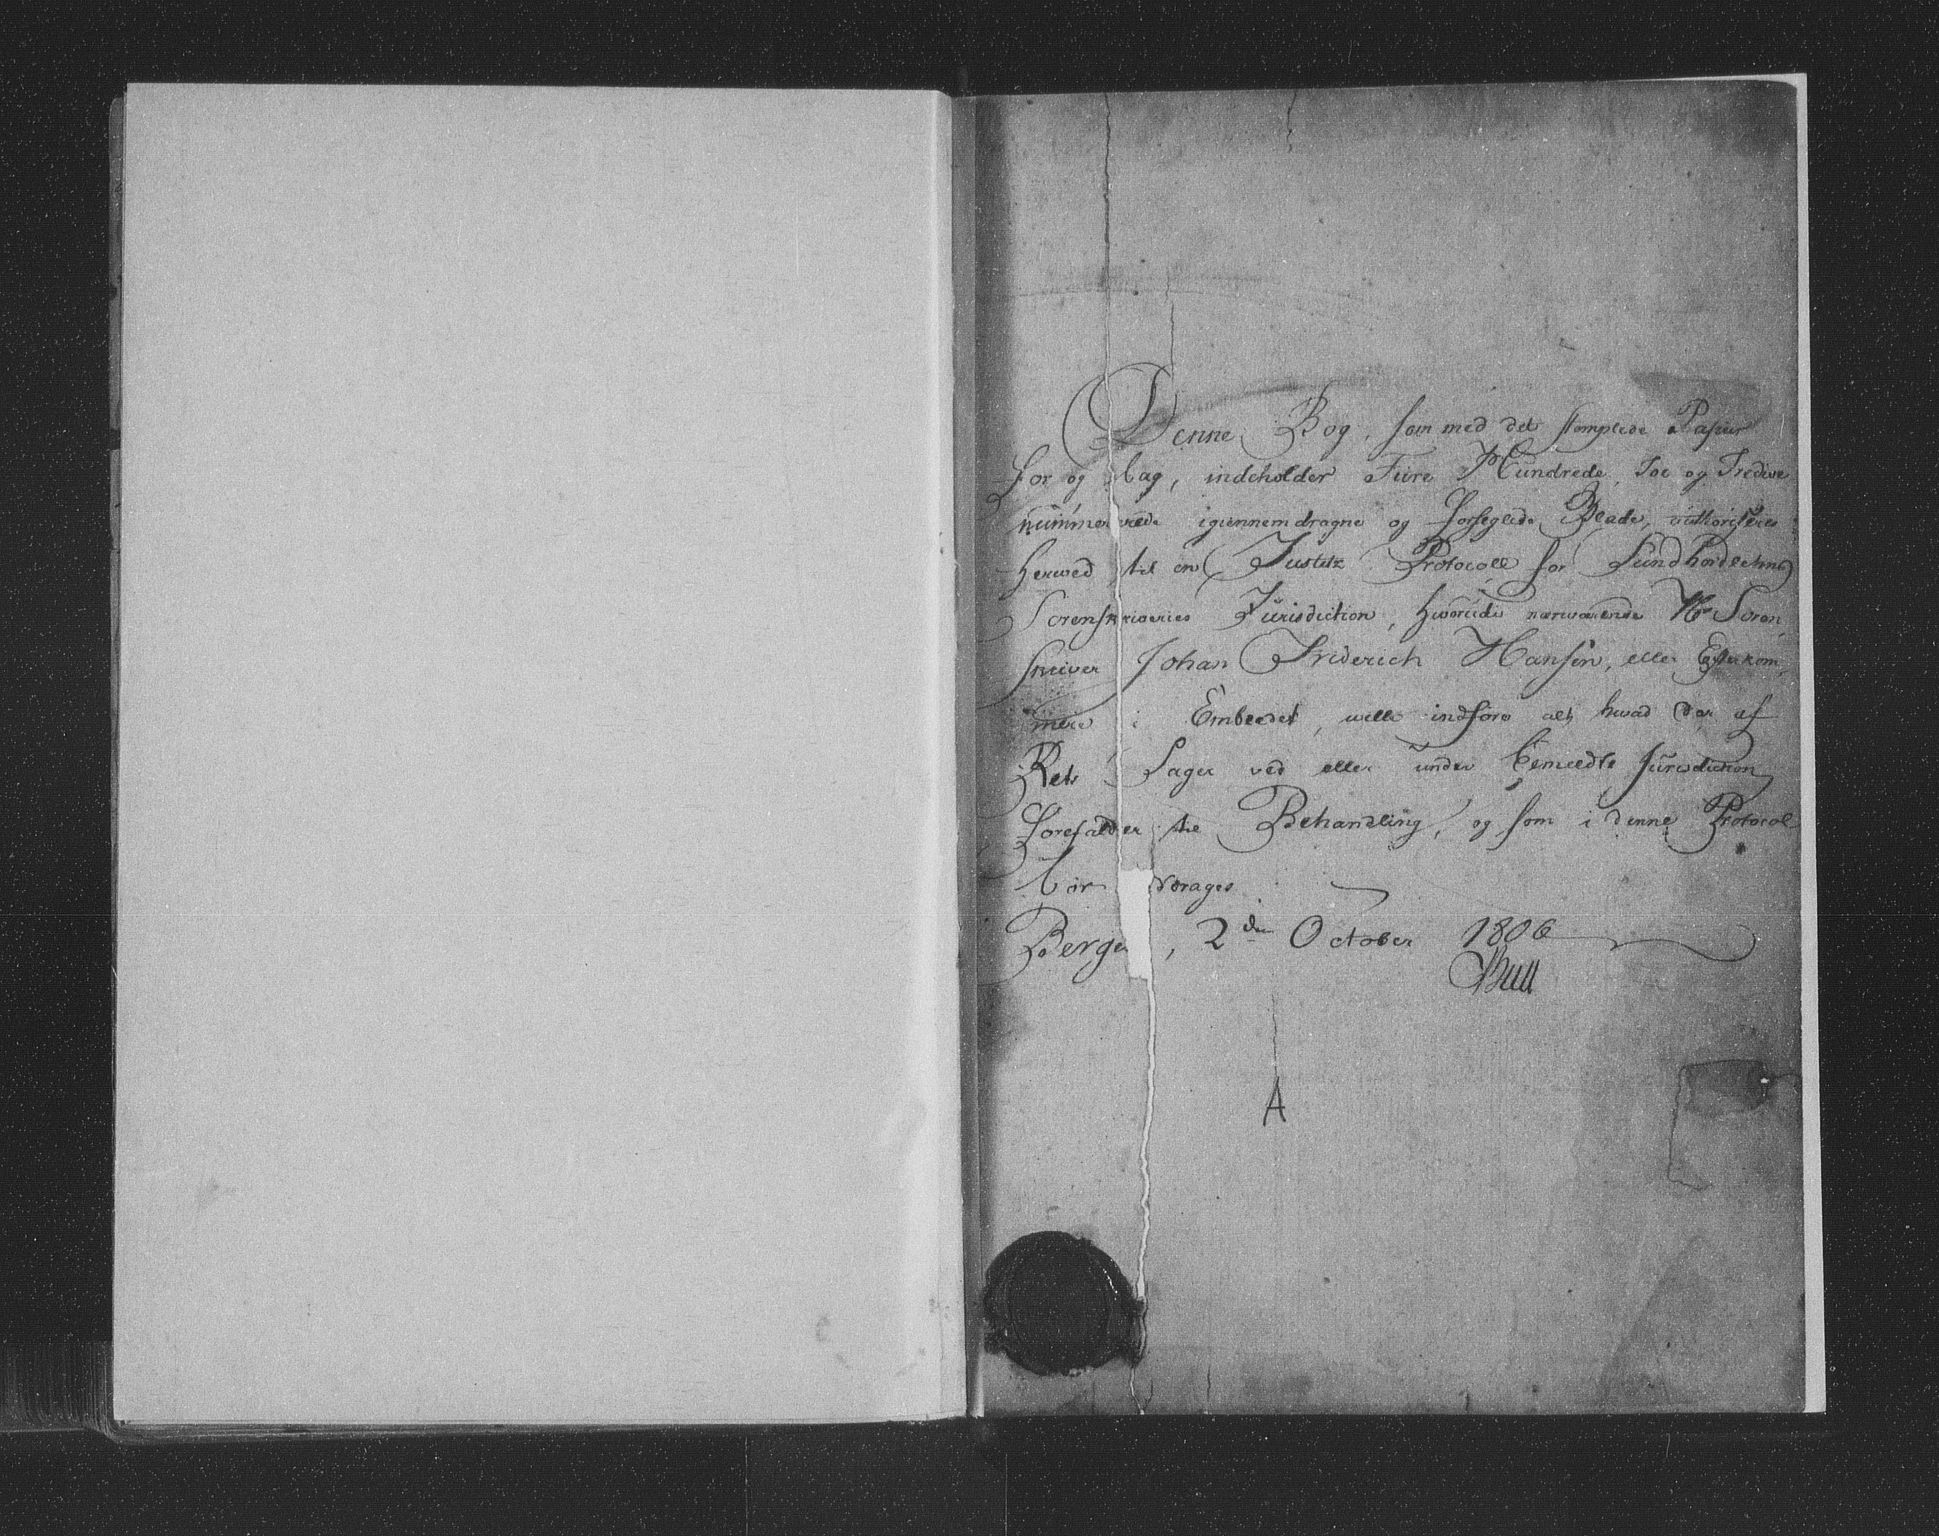 Denne Bog, som med det stemplede Papiir
for og bag, indeholder Fiire Hundrede, Toe og Tredive
nummererede igiennemdragne og forseglede Blade, authoriseres
herved til en Justitz Protocoll for Sundhordlehns
Sorenskriveries Jurisdiction, hvorudi nærværende Hr Soren
skriver Johan Friderich Hansen, eller Efterkom
mere i Embedet, ville indføre alt hvad der af
Rets Sager ved eller under bemeldte Jurisdiction
forefalder til Behandling, og som i denne Protocol
bør drages
Bergen, 2den October 1806
Bull
A